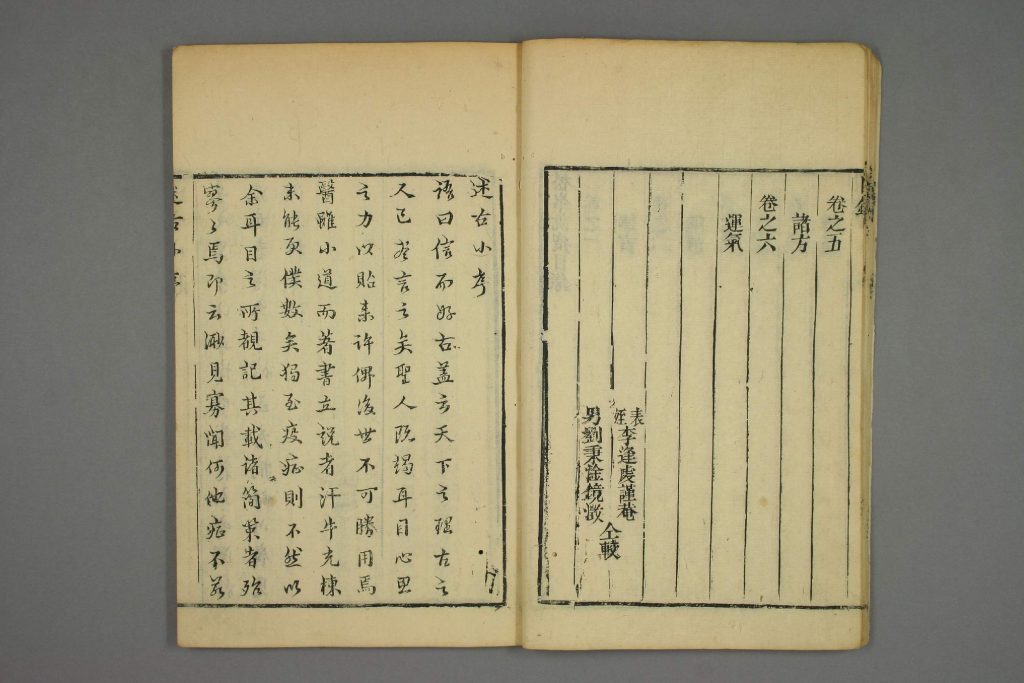 卷之五
諸方
卷之六
運氣
表姪李逢慶謹菴
男劉秉淦鏡微
仝較
述古小序
語曰信而好古蓋言天下之理古之
人已盡言之矣聖人既竭耳目心思
之力以貽來許俾後世不可勝用焉
醫雖小道而著書立說者汗牛充棟
未能更僕數矣獨至疫症則不然以
余耳目之所覩記其載諸簡策者殆
寥寥焉即云渺見寡聞何他症不若